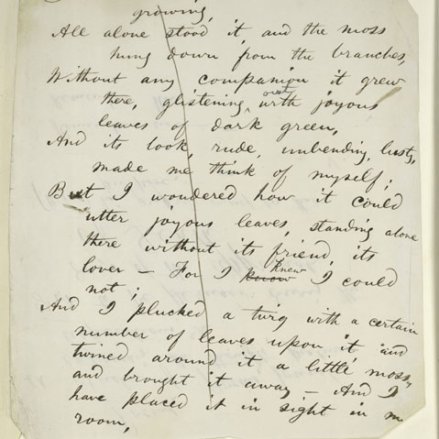 growing,
All alone stood it and the moss
hung down from the branches,
Without any companion it grew
there, glistening out with joyous
leaves of dark green,
And its look, rude, unbending, lusty,
made me think of myself;
But I wondered how it could
utter joyous leaves, standing alone
there without its friend, its
lover — For I know knew I could
not;
And I plucked a twig with a certain
number of leaves upon it and
twined around it a little moss,
and brought it away — And I
have placed it in sight in m
room,